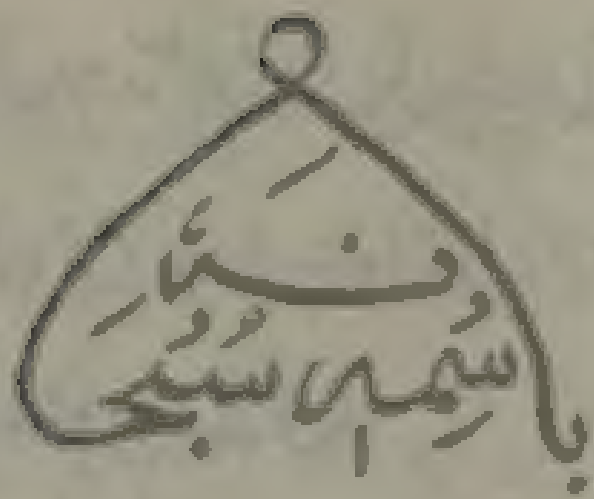 باسمه سبحانه